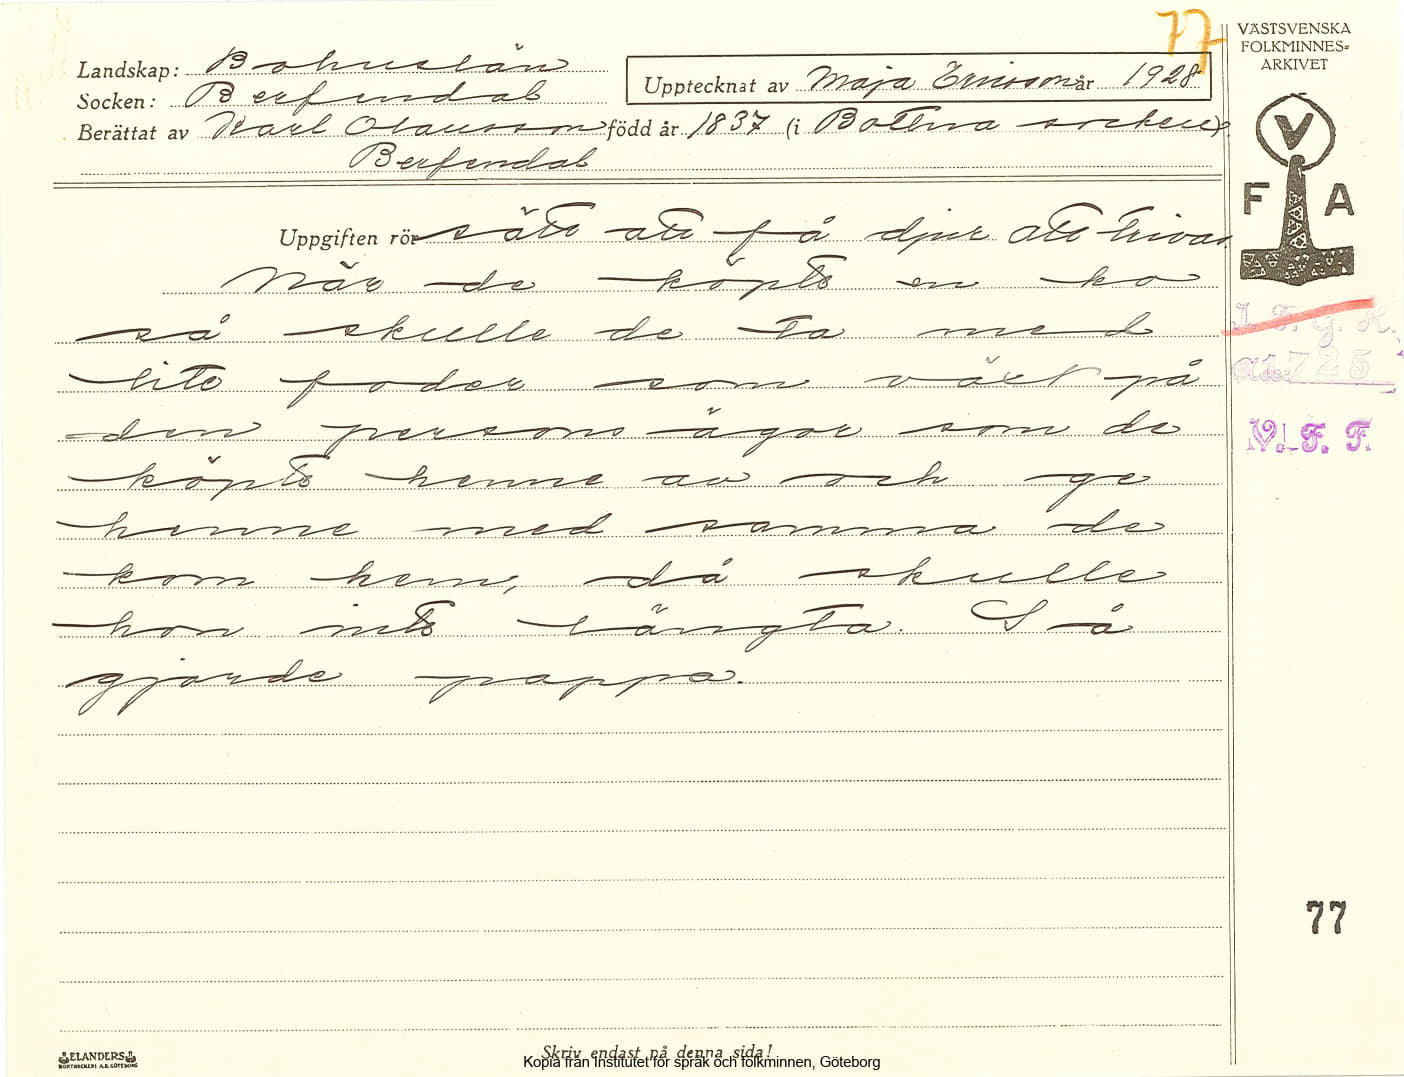 77
VÄSTSVENSKA
FOLKMINNES-
ARKIVET
Landskap: Bohuslän
Upptecknat av Maja Ericsson år 1928
Socken: Berfendal
Berättat av Karl Olausson född år 1837 (i Bottna socken)
Berfendal
V
F A
Uppgiften rör sätt att få djur att trivas.
När de köpte en ko
så skulle de ta med
lite foder som växt på
den persons ägor som de
köpte henne av och ge
henne med samma de
kom hem, då skulle
hon inte längta. Så
gjorde pappa.
I. F. G. H.
Acc: 1725
V. F. F.
77
ELANDERS
BOKTRYCKERI A.B. GÖTEBORG
Skriv endast på denna sida!
Kopia från Institutet för språk och folkminnen, Göteborg